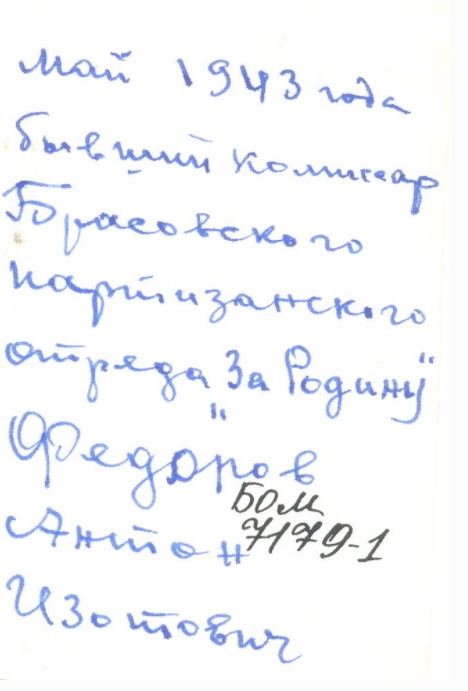 Май 1943 года
бывший комиссар
Брасовского
партизанского
отряда "За Родину"
Федоров
Антон
БОМ
7179-1
Изотович